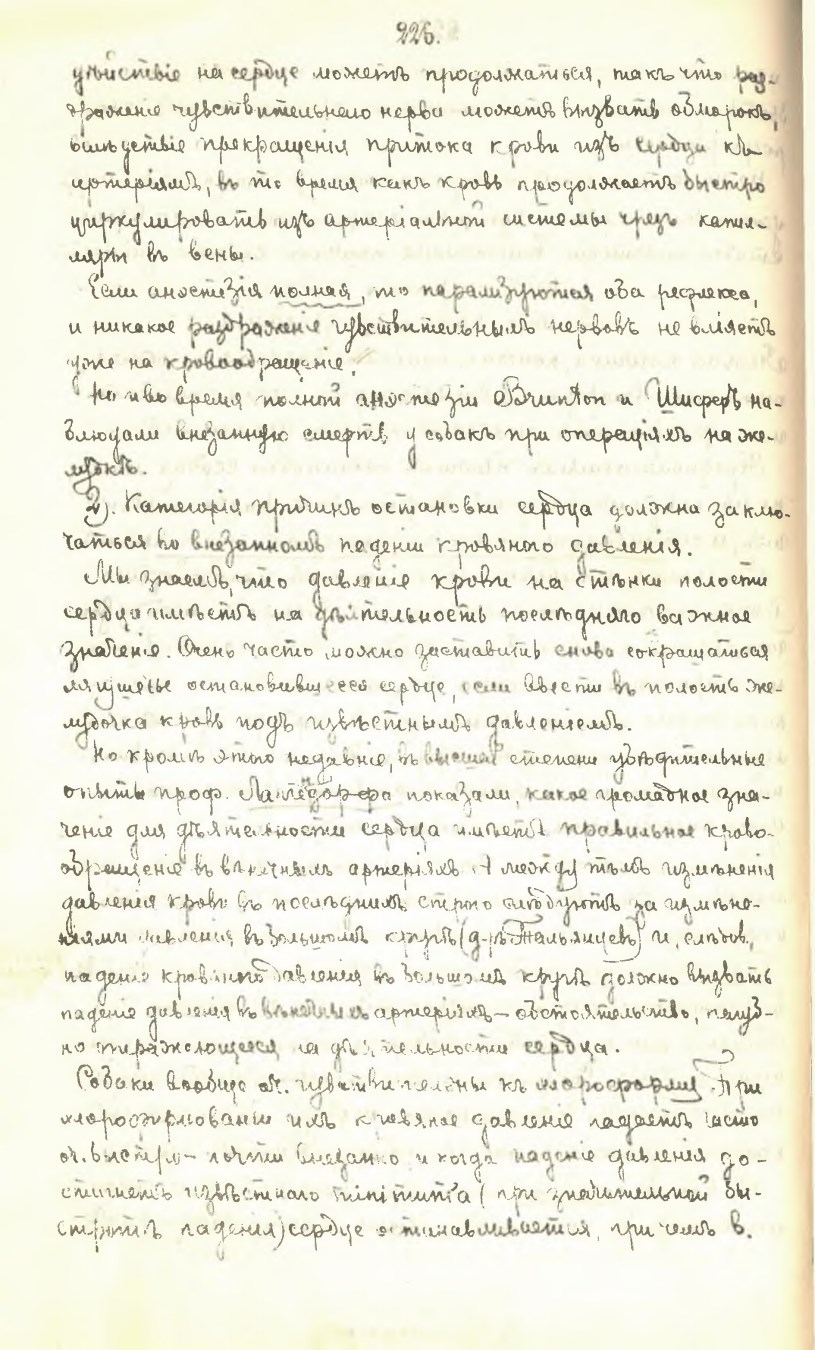 226.
дѣйствіе на сердце можетъ продолжаться, такъ что раз-
драженіе чувствительнаго нерва можетъ вызвать обморокъ,
вслѣдствіе прекращенія притока крови изъ сердца къ
артеріямъ, въ то время какъ кровь продолжаетъ быстро
циркулировать изъ артеріальной системы чрезъ капил-
ляры въ вены.
Если анэстезія полная, то парализуются оба рефлекса,
и никакое раздраженіе чувствительныхъ нервовъ не вліяетъ
уже на кровообращеніе.
Но и во время полной анэстезіи Brunton и Шифферъ на-
блюдали внезапную смерть у собакъ при операціяхъ на же-
лудкѣ.
2). Категорія причинъ остановки сердца должна заклю-
чаться во внезапномъ паденіи кровяного давленія.
Мы знаемъ, что давленіе крови на стѣнки полости
сердца имѣетъ на дѣятельность послѣдняго важное
значеніе. Очень часто можно заставить снова сокращаться
лягушечье остановившееся сердце, если ввести въ полость же-
лудочка кровь подъ извѣстнымъ давленіемъ.
Но кромѣ этого недавніе, въ высшей степени убѣдительные
опыты проф. Лангендорфа показали, какое громадное зна-
ченіе для дѣятельности сердца имѣетъ правильное крово-
обращеніе въ вѣнечныхъ артеріяхъ. А между тѣмъ измѣненія
давленія крови въ послѣднихъ строго слѣдуютъ за измѣне-
ніями давленія въ большомъ кругѣ (д-ръ Тальянцевъ) и, слѣдов.,
паденіе кровяного давленія въ большомъ кругѣ должно вызвать
паденіе давленія въ вѣнечныхъ артеріяхъ — обстоятельство, пагуб-
но отражающееся на дѣятельности сердца.
Собаки вообще оч. чувствительны къ хлороформу. При
хлороформованіи ихъ кровяное давленіе падаетъ часто
оч. быстро — почти внезапно и когда паденіе давленія до-
стигнетъ извѣстнаго minimum'а (при значительной бы-
стротѣ паденія) сердце останавливается, при чемъ в.